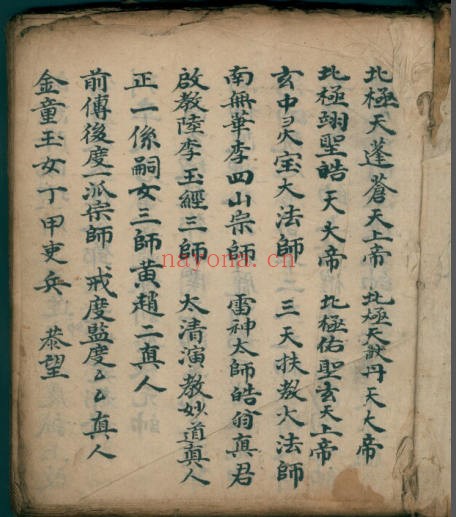 北極天蓬蒼天上帝 北極天猷丹天大帝
北極翊聖皓天大帝 北極佑聖玄天上帝
玄中灵宝大法師 三天扶教大法師
南無華李四山宗師 雷神太師皓翁真君
啟教陸李玉經三師 太清演教妙道真人
正一係嗣女三師黄趙二真人
前傳後度一派宗師 戒度監度厶厶真人
金童玉女丁甲吏兵 恭望
nayona.cn